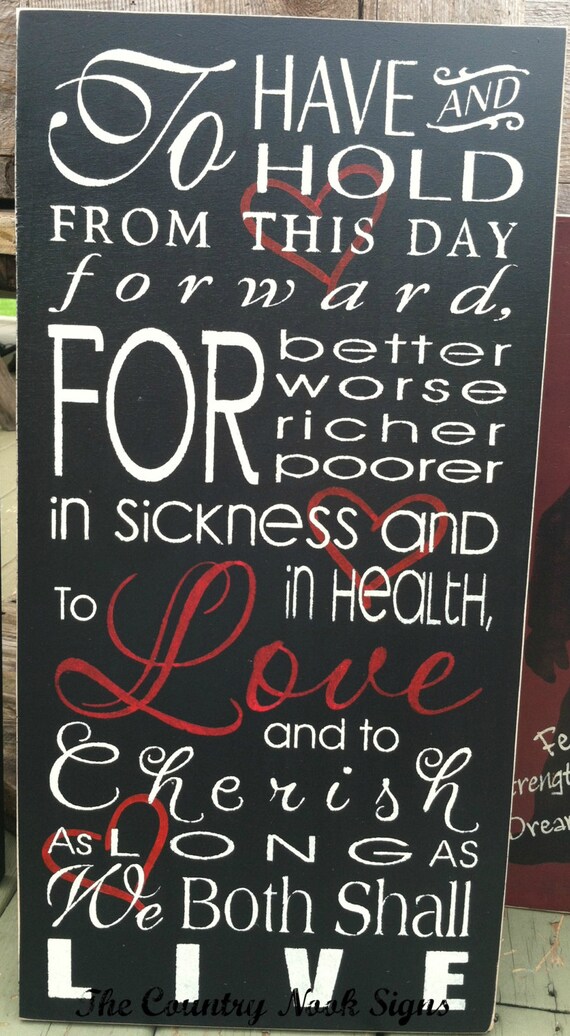 To HAVE AND
HOLD
FROM THIS DAY
forward,
FOR better
worse
richer
poorer
in SiCKNESS and
in Health,
To Love
and to
Cherish
As LONG AS
We Both Shall
LIVE
The Country Nook Signs
Fe